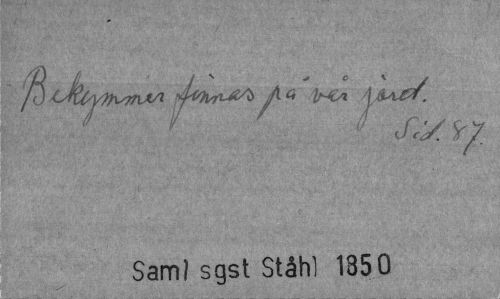 Bekymmer finnas på vår jord.
Sid. 87.
Saml sgst Ståhl 1850